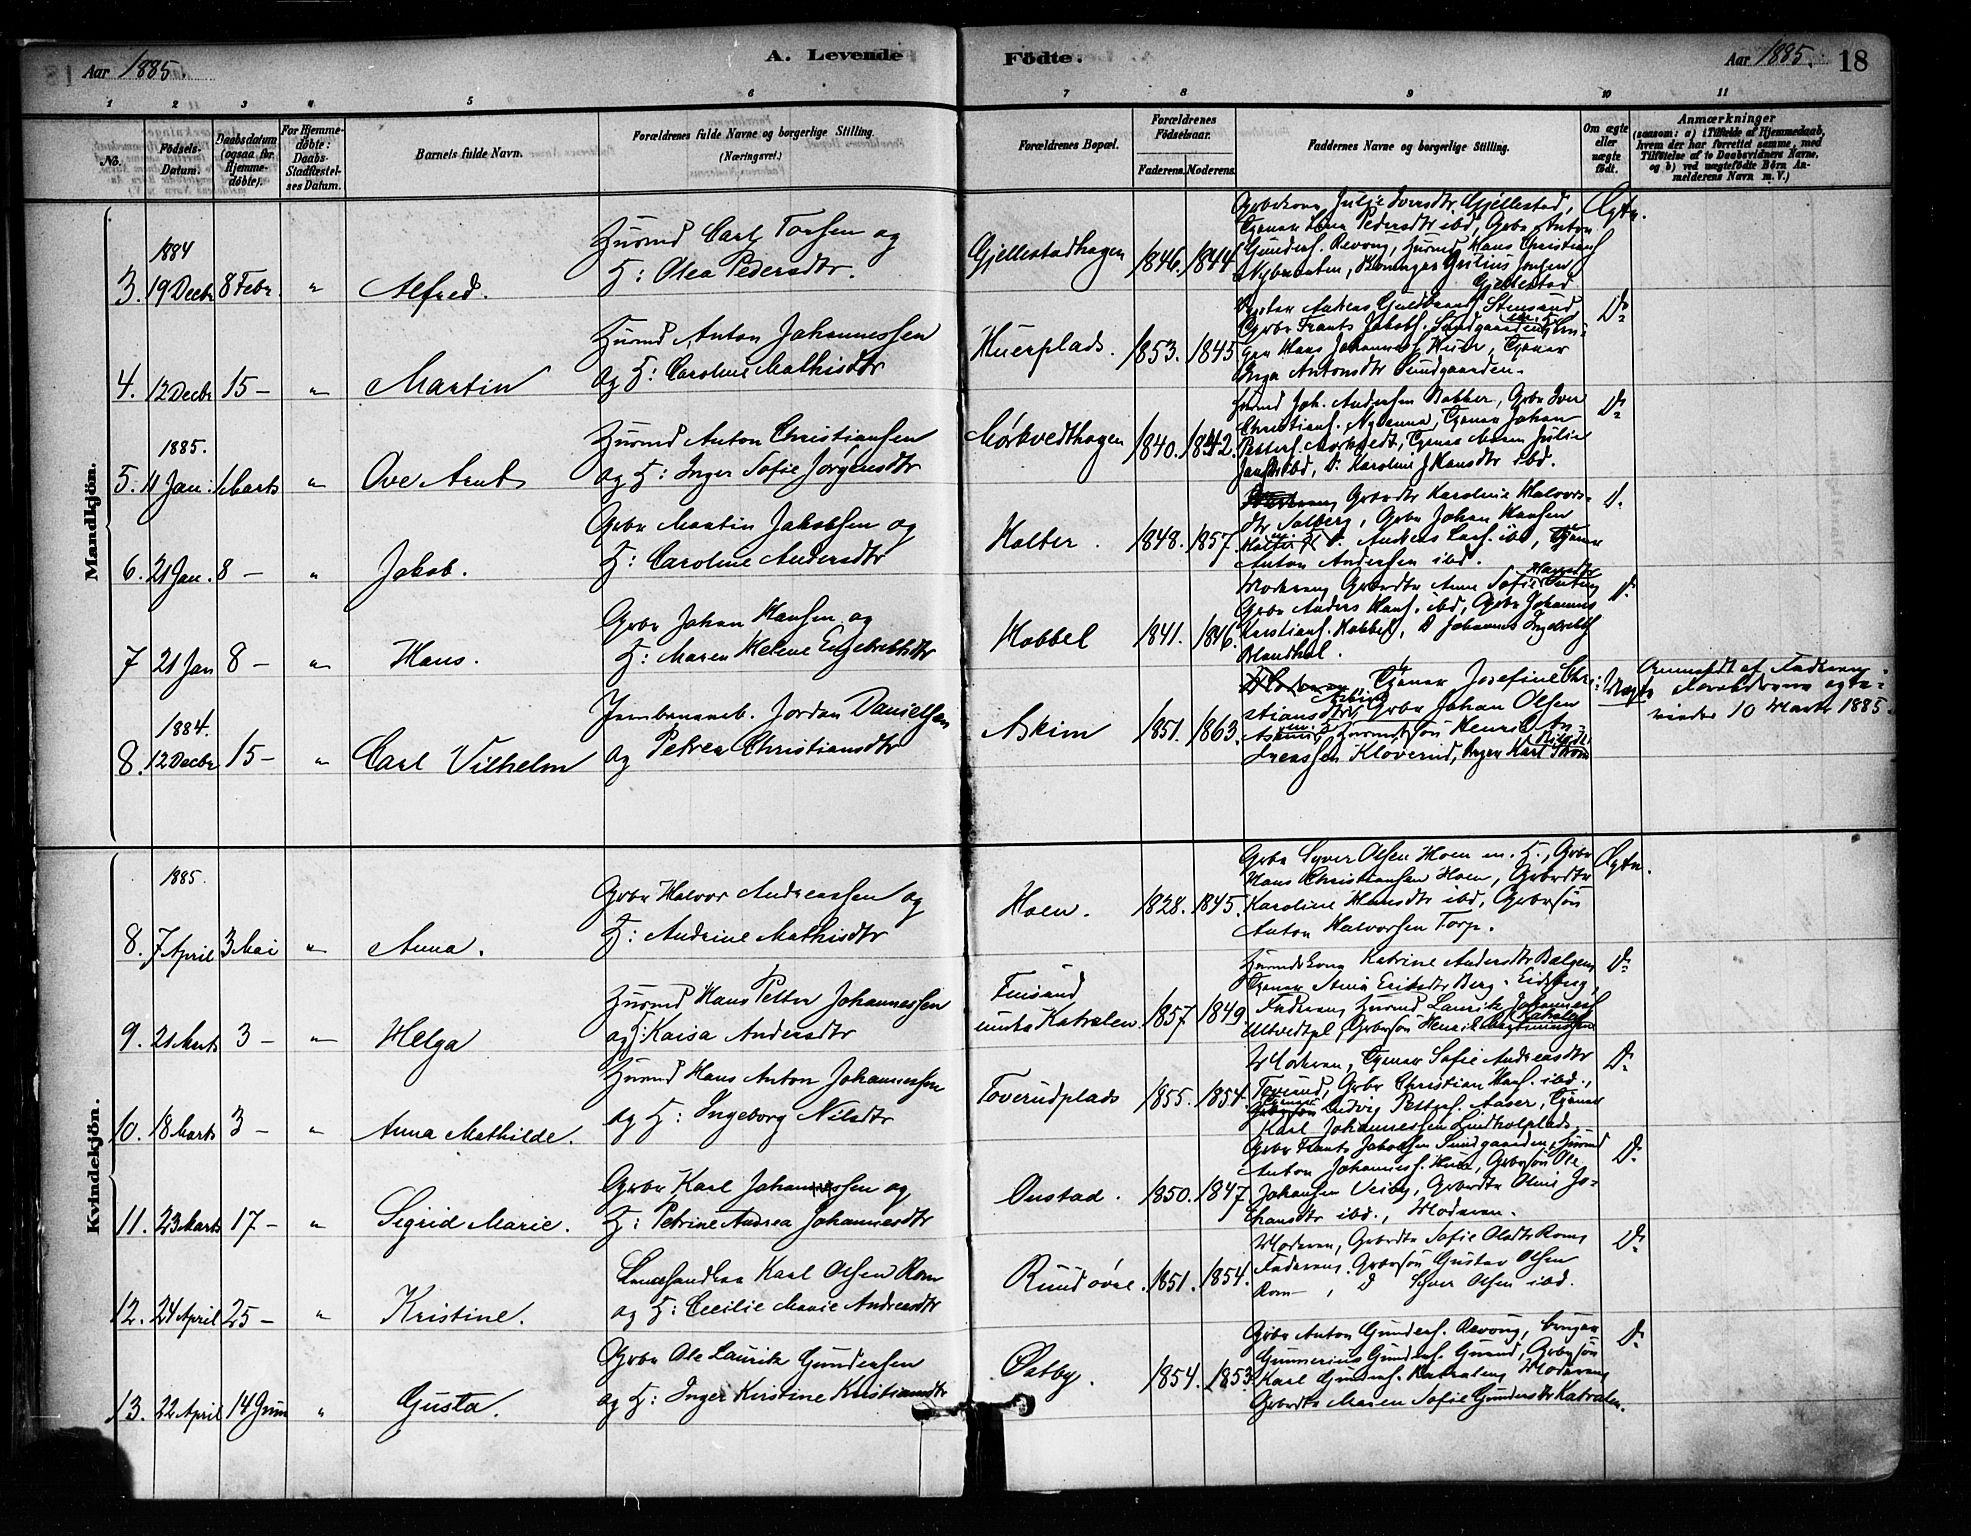 Aar 1885.
A. Levende
Födte.
Aar 1885. 18
1 2 3 4 5 6 7 8 9 10 11
No.
Födsels-
Datum.
Daabsdatum
(ogsaa for
Hjemme-
döbte).
For Hjemme-
döbte:
Daabs-
Stadfæstel-
ses Datum.
Barnets fulde Navn.
Forældrenes fulde Navne og borgerlige Stilling.
(Næringsvei.)
Forældrenes Bopæl.
Forældrenes
Födselsaar.
Faderens. Moderens.
Faddernes Navne og borgerlige Stilling.
Om ægte
eller
uægte
födt.
Anmærkninger
(saasom: a) i Tilfælde af Hjemmedaab,
hvem der har forrettet samme, med
Tilföielse af to Daabsvidners Navne,
og b) ved uægtefödte Börn An-
melderens Navn m. V.)
Mandkjön.
1884
3. 19 Decbr 8 Febr. " Alfred.
Husmd Carl Torsen og
H: Olea Pedersdtr.
Gjellestadhagen 1846. 1844
Gbrkone Julie Iversdtr Gjellestad,
Tjener Lina Pedersdtr ibd, Gbr Anton
Gunders. Revoug, Husmd Hans Christians
Nybraaten, Julius Jensen
Gjellestad
Ægte.
4. 12 Decbr 15 – " Martin
Husmd Anton Johannessen
og H: Caroline Mathisdtr
Huerplads. 1853. 1845
Andreas Guldbrands. Stensrud
Gbr Frants Jakobs. Sundgaarden m. H.
Hans Johanness. Huer, Tjener
Inga Antonsdtr Sundgaarden.
Do
1885.
5. 11 Jan. 1 Marts " Ove Arnt
Husmd Anton Christiansen
og H: Inger Sofie Jørgensdtr
Mörkvedthagen 1840. 1842.
Husmd Joh. Andersen Bakker, Gbr Iver
Christians. , Tjener Johan
Petters. Mörkvedt, Tjener Maren Julie
ibd, D: Karoline J Hansdtr ibd.
Do
6. 21 Jan. 8 – " Jakob.
Gbr Martin Jakobsen og
H: Caroline Andersdtr
Holter. 1848. 1857
Gbrdtr Karoline Halvors-
dtr Solberg, Gbr Johan Hansen
Holter m. H. D: Andreas Lars. ibd, Tjener
Anton Andersen ibd.
D.
7 21 Jan 8 – " Hans.
Gbr Johan Hansen og
H: Maren Helene Engebretsdtr
Hobbel 1841. 1846.
Moderen, Gbrdtr Anne Sofie Hansdtr
Gbr Anders Hans. ibd, Gbr Johannes
Kristians. Hobbel, D Johannes Ingebrets
D.
1884.
8. 12 Decbr 15 – " Carl Vilhelm
Jernbanearb. Jordan Danielsen
og Petrea Christiansdtr
Askim 1851. 1863.
Tjener Josefine Chri-
stiansdtr Askim, Gbr Johan Olsen
Askim, Husmdsön Henrik An-
dreassen Kloverud, Karl
Uægte
Anmeldt af Faderen.
Forældrene ægte-
viedes 10 Marts 1885
Kvindekjön.
1885.
8. 7 April 3 Mai " Anna.
Gbr Halvor Andreassen og
H: Andrine Mathisdtr
Hoen. 1828. 1845.
Gbr Syver Olsen Hoen m. H., Gbr
Hans Christiansen Hoen, Gbrdtr
Karoline Hansdtr ibd, Gbrsön
Anton Halvorsen Torp.
Ægte.
9. 21 Marts 3 – " Helga
Husmd Hans Petter Johannessen
og H: Kaisa Andersdtr
Finsand
under Katralen 1857 1849.
Husmdskone Katrine Andersdtr
Tjener Anna Eriksdtr Berg, Eidsberg,
Faderen, Husmd Lauritz Johanness
Ultvedtpl, Gbrsön Henrik Katralen
Do
10. 18 Marts 3 – " Anna Mathilde.
Husmd Hans Anton Johannessen
og H: Ingeborg Nilsdtr
Toverudplads 1855. 1854.
Moderen, Tjener Sofie Andreasdtr
Toverud, Gbr Christian Hans. ibd.,
Tjener Ludvig Petters. Aaser, Tjener
Karl Johannessen Lindholplads.
Do
11. 23 Marts 17 – " Sigrid Marie.
Gbr Karl Johansen og
H: Petrine Andrea Johannesdtr
Onstad. 1850. 1847
Gbr Frants Jakobsen Sundgaarden, Husmd
Anton Johanness. Huer, Gbrsön Ole
Johansen Veiby, Gbrdtr Oline Jo-
hansdtr ibd., Moderen.
Do
12. 24 April 25 – " Kristine.
Landhandler Karl Olsen Rom
og H: Cecilie Marie Andreasdtr
Rundövel. 1851. 1854.
Moderen, Gbrdtr Sofie Olsdtr Rom,
Faderen. Gbrsön Gustav Olsen
Rom, D Syver Olsen ibd.
Do
13. 22 April 14 Juni " Gusta.
Gbr Ole Lauritz Gundersen
og H: Inger Kirstine Kristiansdtr
Östby. 1854. 1853.
Gbr Anton Gunders. Revoug, bruger
Gunnerius Gunders. Gurud, Gbrsön
Karl Gunders. Katralen, Moderen,
Gbrdtr Maren Sofie Gundersdtr Katralen.
Do